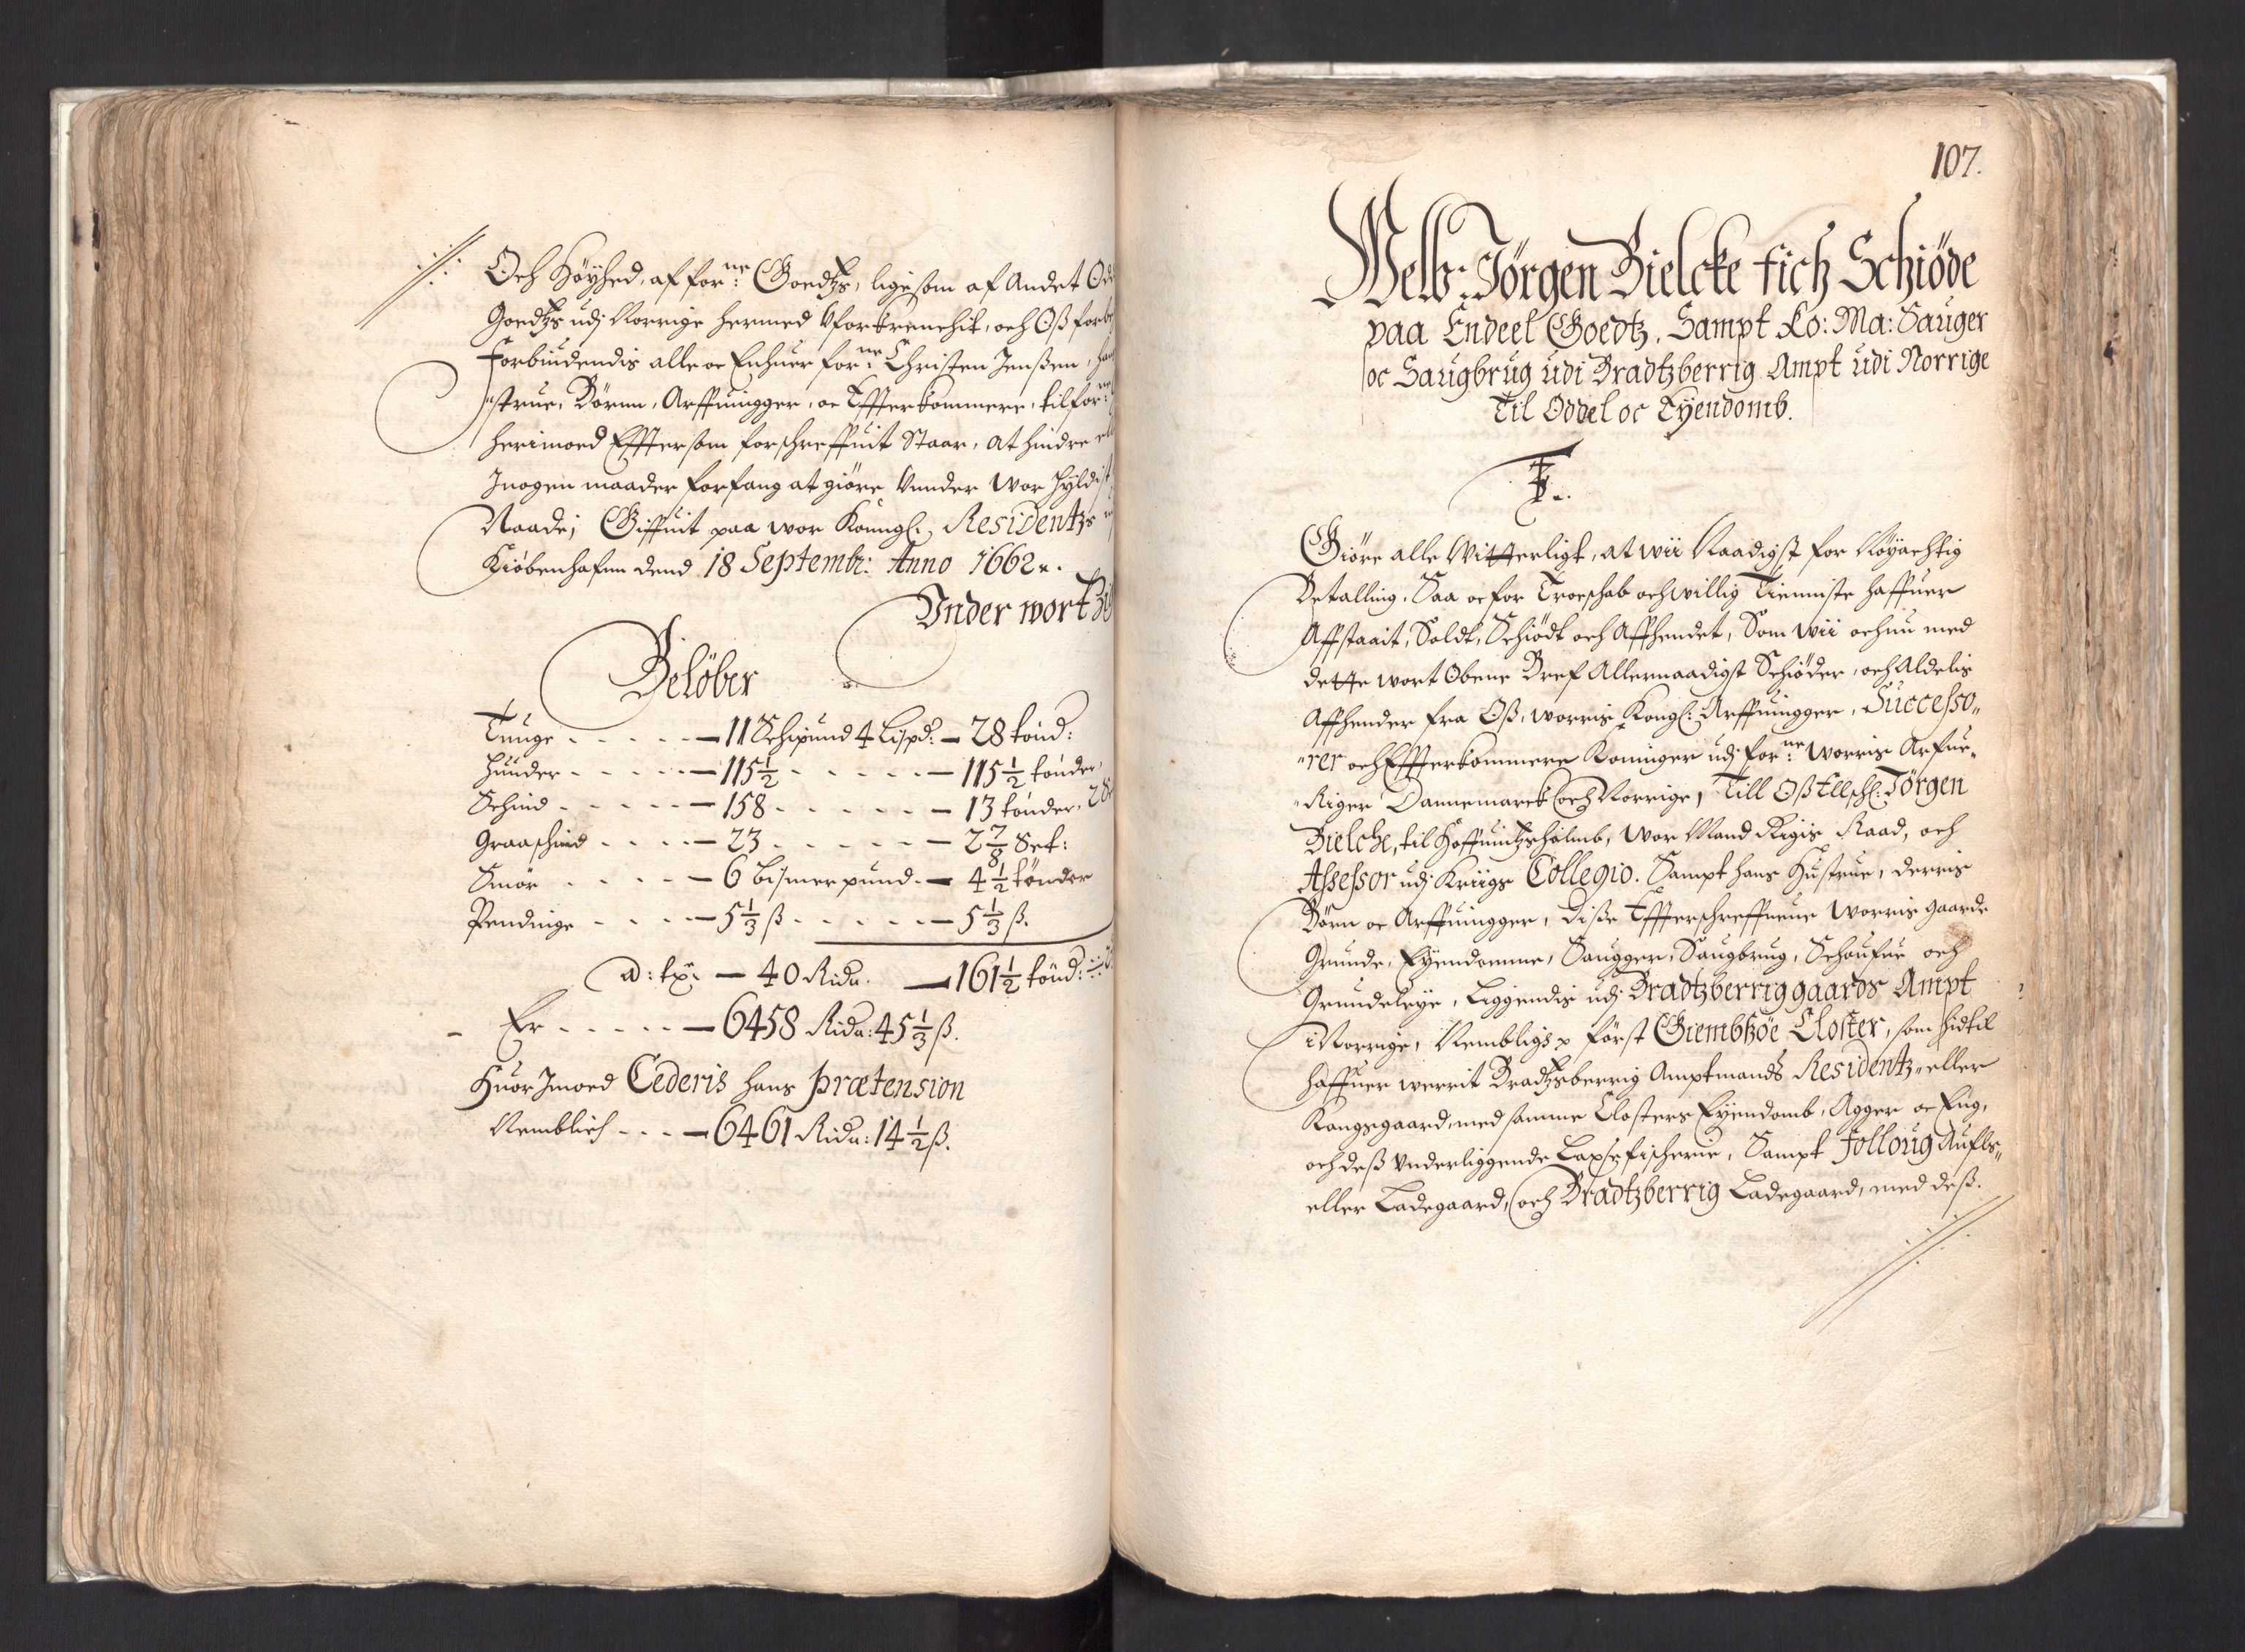 Och Höyhed, af for.ne Goedtzs, ligesom af Andet
Goedtzs udj Norrige hermed Vforkrenchit, och Oß
Forbiudendis alle oc Enhuer for.ne Christen Jenßen,
"strue, Börnn, Arffuingger, oc Effterkommere, til for.ne
herimoed Efftersom forschreffuit Staar, at hindre
Jnogen maader forfang at giöre Vnnder Wor Hyldist
Naade; Giffuit paa wor Konngl: Residentzs
Kiöbenhafnn dend 18 Septembr: Anno 1662.
Vnder wort
Belöber
Tunge - - - - - 11 Schipund 4 Lispd: - 28 tönd:
Huuder - - - - - 115 1/2 - - - - - 115 1/2 tönder
Schind - - - - - 158 - - - - - 13 tönder
Graaschind - - - - 23 - - - - - 2 7/8 Set:
Smör - - - - 6 Bismerpund - 4 1/2 tönder
Pendinge - - - - 5 1/3 ß - - - - - 5 1/3 ß.
a: tx: - 40 Rida. - 161 1/2 tönd:
Er - - - - - 6458 Rida: 45 1/3 ß.
Huor Jmoed Cederis hans prætension
Nemblich - - - 6461 Rida: 14 1/2 ß.
107.
Welb: Jörgen Bielcke fich Schiöde
paa Endeel Goedtz, Sampt Ko: Ma: Sauger
oc Saugbrug udi Bradtzberrig Ampt udi Norrige
Til Oddel oc Eyendomb.
F.
Giöre alle Vitterligt, at wii Naadigst for Nöyachtig
Betalling, Saa oc for Troeschab och willig Tienniste haffuer
Affstaait, Soldt, Schiödt och Affhendet, Som wii och nu med
dette wort Obene Bref Allernaadigst Schiöder, och Aldelis
Affhender fra Oß, worris Kongl: Arffuingger, Successo„
"rer och Effterkommere Koninger udj for.ne Worris Arfue„
"Riger Dannemarck och Norrige, Till Oß Ellschl: Jörgen
Bielche, til Haffuintzholmb, Wor Mand Rigis Raad, och
Assessor udj Kriigs Collegio. Sampt hans Hustrue, derris
Börn oc Arffuingger, Diße Effterschreffneue Worris gaarde
Grunde, Eyendomme, Saugger, Saugbrug, Schoufue och
Grundeleye, Liggendis udj Bradtzberriggaards Ampt
i Norrige, Nembligs först Giembsöe Closter, som hidtil
haffuer werrit Bradtzberrig Amptmands Residentz„ eller
Kongsgaard, med samme Closters Eyendomb, Agger oc Eng,
och deß Vnderliggende Laxsefischerie, Sampt Folloug Aufls„
eller Ladegaard, och Bradtzberrig Ladegaard, med deß.